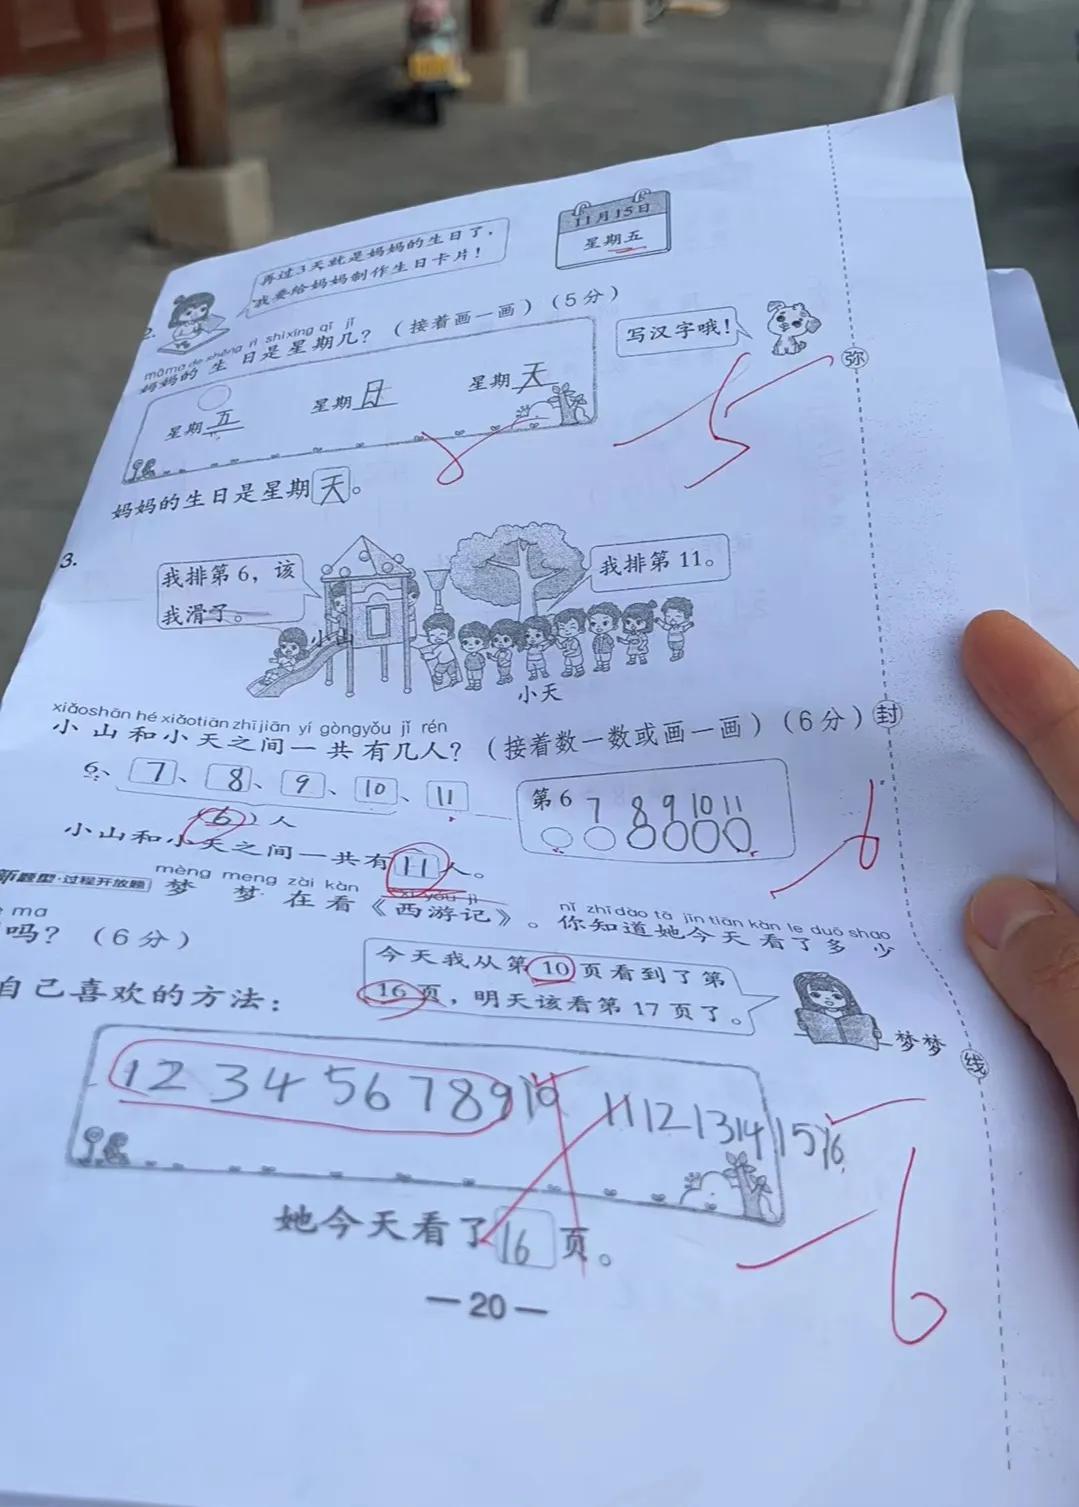 再过3天就是妈妈的生日了，
我要给妈妈制作生日卡片！
11月15日
星期五
2.
māma de shēng rì shì xīng qī jǐ
妈妈的生日是星期几？（接着画一画）（5分）
写汉字哦！
星期五
星期日
星期天
弥
5
妈妈的生日是星期天。
3.
我排第6，该
我滑了。
我排第11。
小山
小天
xiǎoshān hé xiǎotiān zhī jiān yí gòngyǒu jǐ rén
小山和小天之间一共有几人？（接着数一数或画一画）（6分）
封
6、7、8、9、10、11
（6）人
第6 7 8 9 10 11
6
小山和小天之间一共有11人。
新题型·过程开放题
mèng meng zài kàn xī yóu jì nǐ zhīdào tā jīn tiān kàn le duō shao
梦梦在看《西游记》。你知道她今天看了多少
ma
吗？（6分）
今天我从第10页看到了第
16页，明天该看第17页了。
梦梦
自己喜欢的方法：
线
1 2 3 4 5 6 7 8 9 10 11 12 13 14 15 16
她今天看了16页。
6
—20—